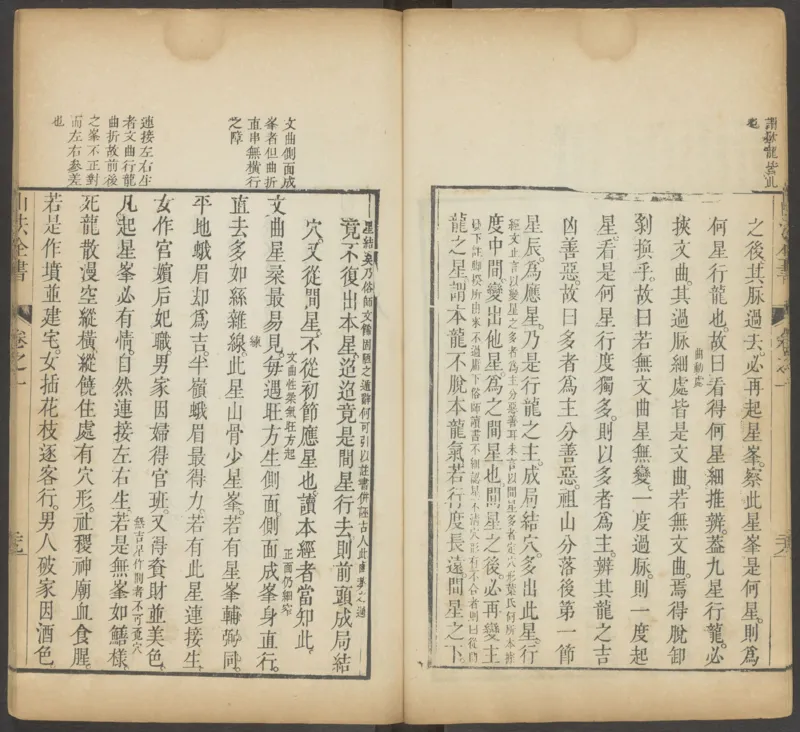 之後其脉過去必再起星峯察此星峯是何星則為
何星行龍也故曰看得何星細推辨蓋九星行龍必
曲動處
挾文曲其過脉細處皆是文曲若無文曲焉得脫卸
剝換乎故曰若無文曲星無變一度過脉則一度起
星看是何星行度獨多則以多者為主辨其龍之吉
凶善惡故曰多者為主分善惡祖山分落後第一節
星辰為應星乃是行龍之主成局結穴多出此星行
經文止言以變星之多者為主分惡善耳未言以間星多者定穴形葉氏何所本
度中間變出他星為之間星也間星之後必再變主
龍之星謂本龍不脫本龍氣若行度長遠間星之下
星結
竟不復出本星迢迢竟是間星行去則前頭成局結
穴又從間星不從初節應星也讀本經者當知此
文曲星柔最易見每遇旺方生側面側面成峯身直行
文曲性柔氣旺方起
正面仍細窄
直去多如絲雜線此星山骨少星峯若有星峯輔弼同
平地蛾眉却為吉半嶺蛾眉最得力若有此星連接生
女作官嬪后妃職男家因婦得官班又得資財並美色
凡起星峯必有情自然連接左右生若是無峯如鱔樣
死龍散漫空縱橫縱饒住處有穴形社稷神廟血食腥
若是作墳並建宅女插花枝逐客行男人破家因酒色
文曲側面成
峯者但曲折
直串無橫行
之障
連接左右生
者文曲行龍
曲折故前後
之峯不正對
而左右參差
也
山法全書
卷之一